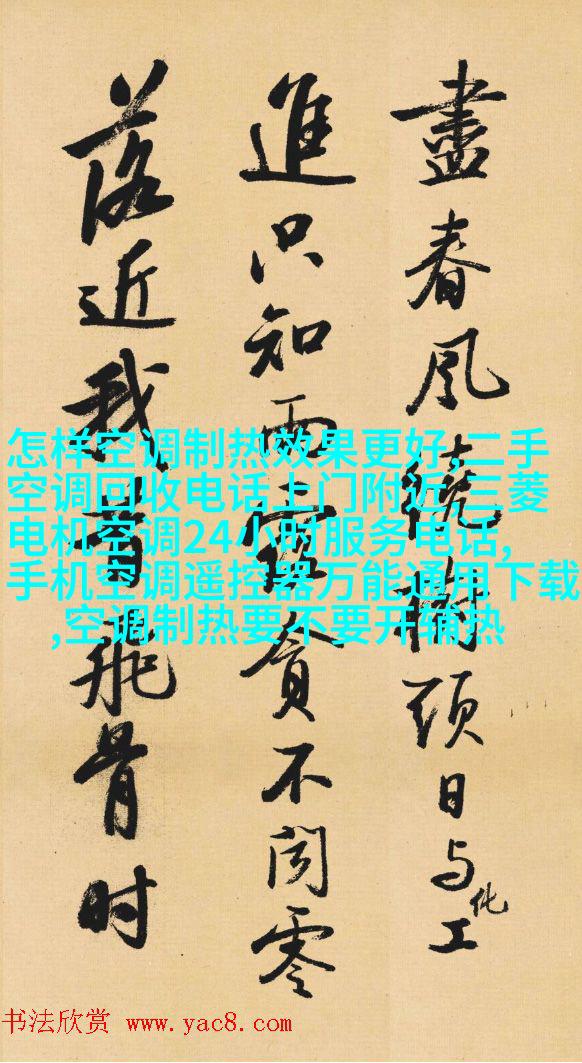 盡春風繞樹頭日与化工
進只知雨露貪不聞零
落近我昔飛骨时
怎样空调制热效果更好,二手
空调回收电话上门附近,三菱
电机空调24小时服务电话,
手机空调遥控器万能通用下载
,空调制热要不要开辅热
书法欣赏 www.yac8.com